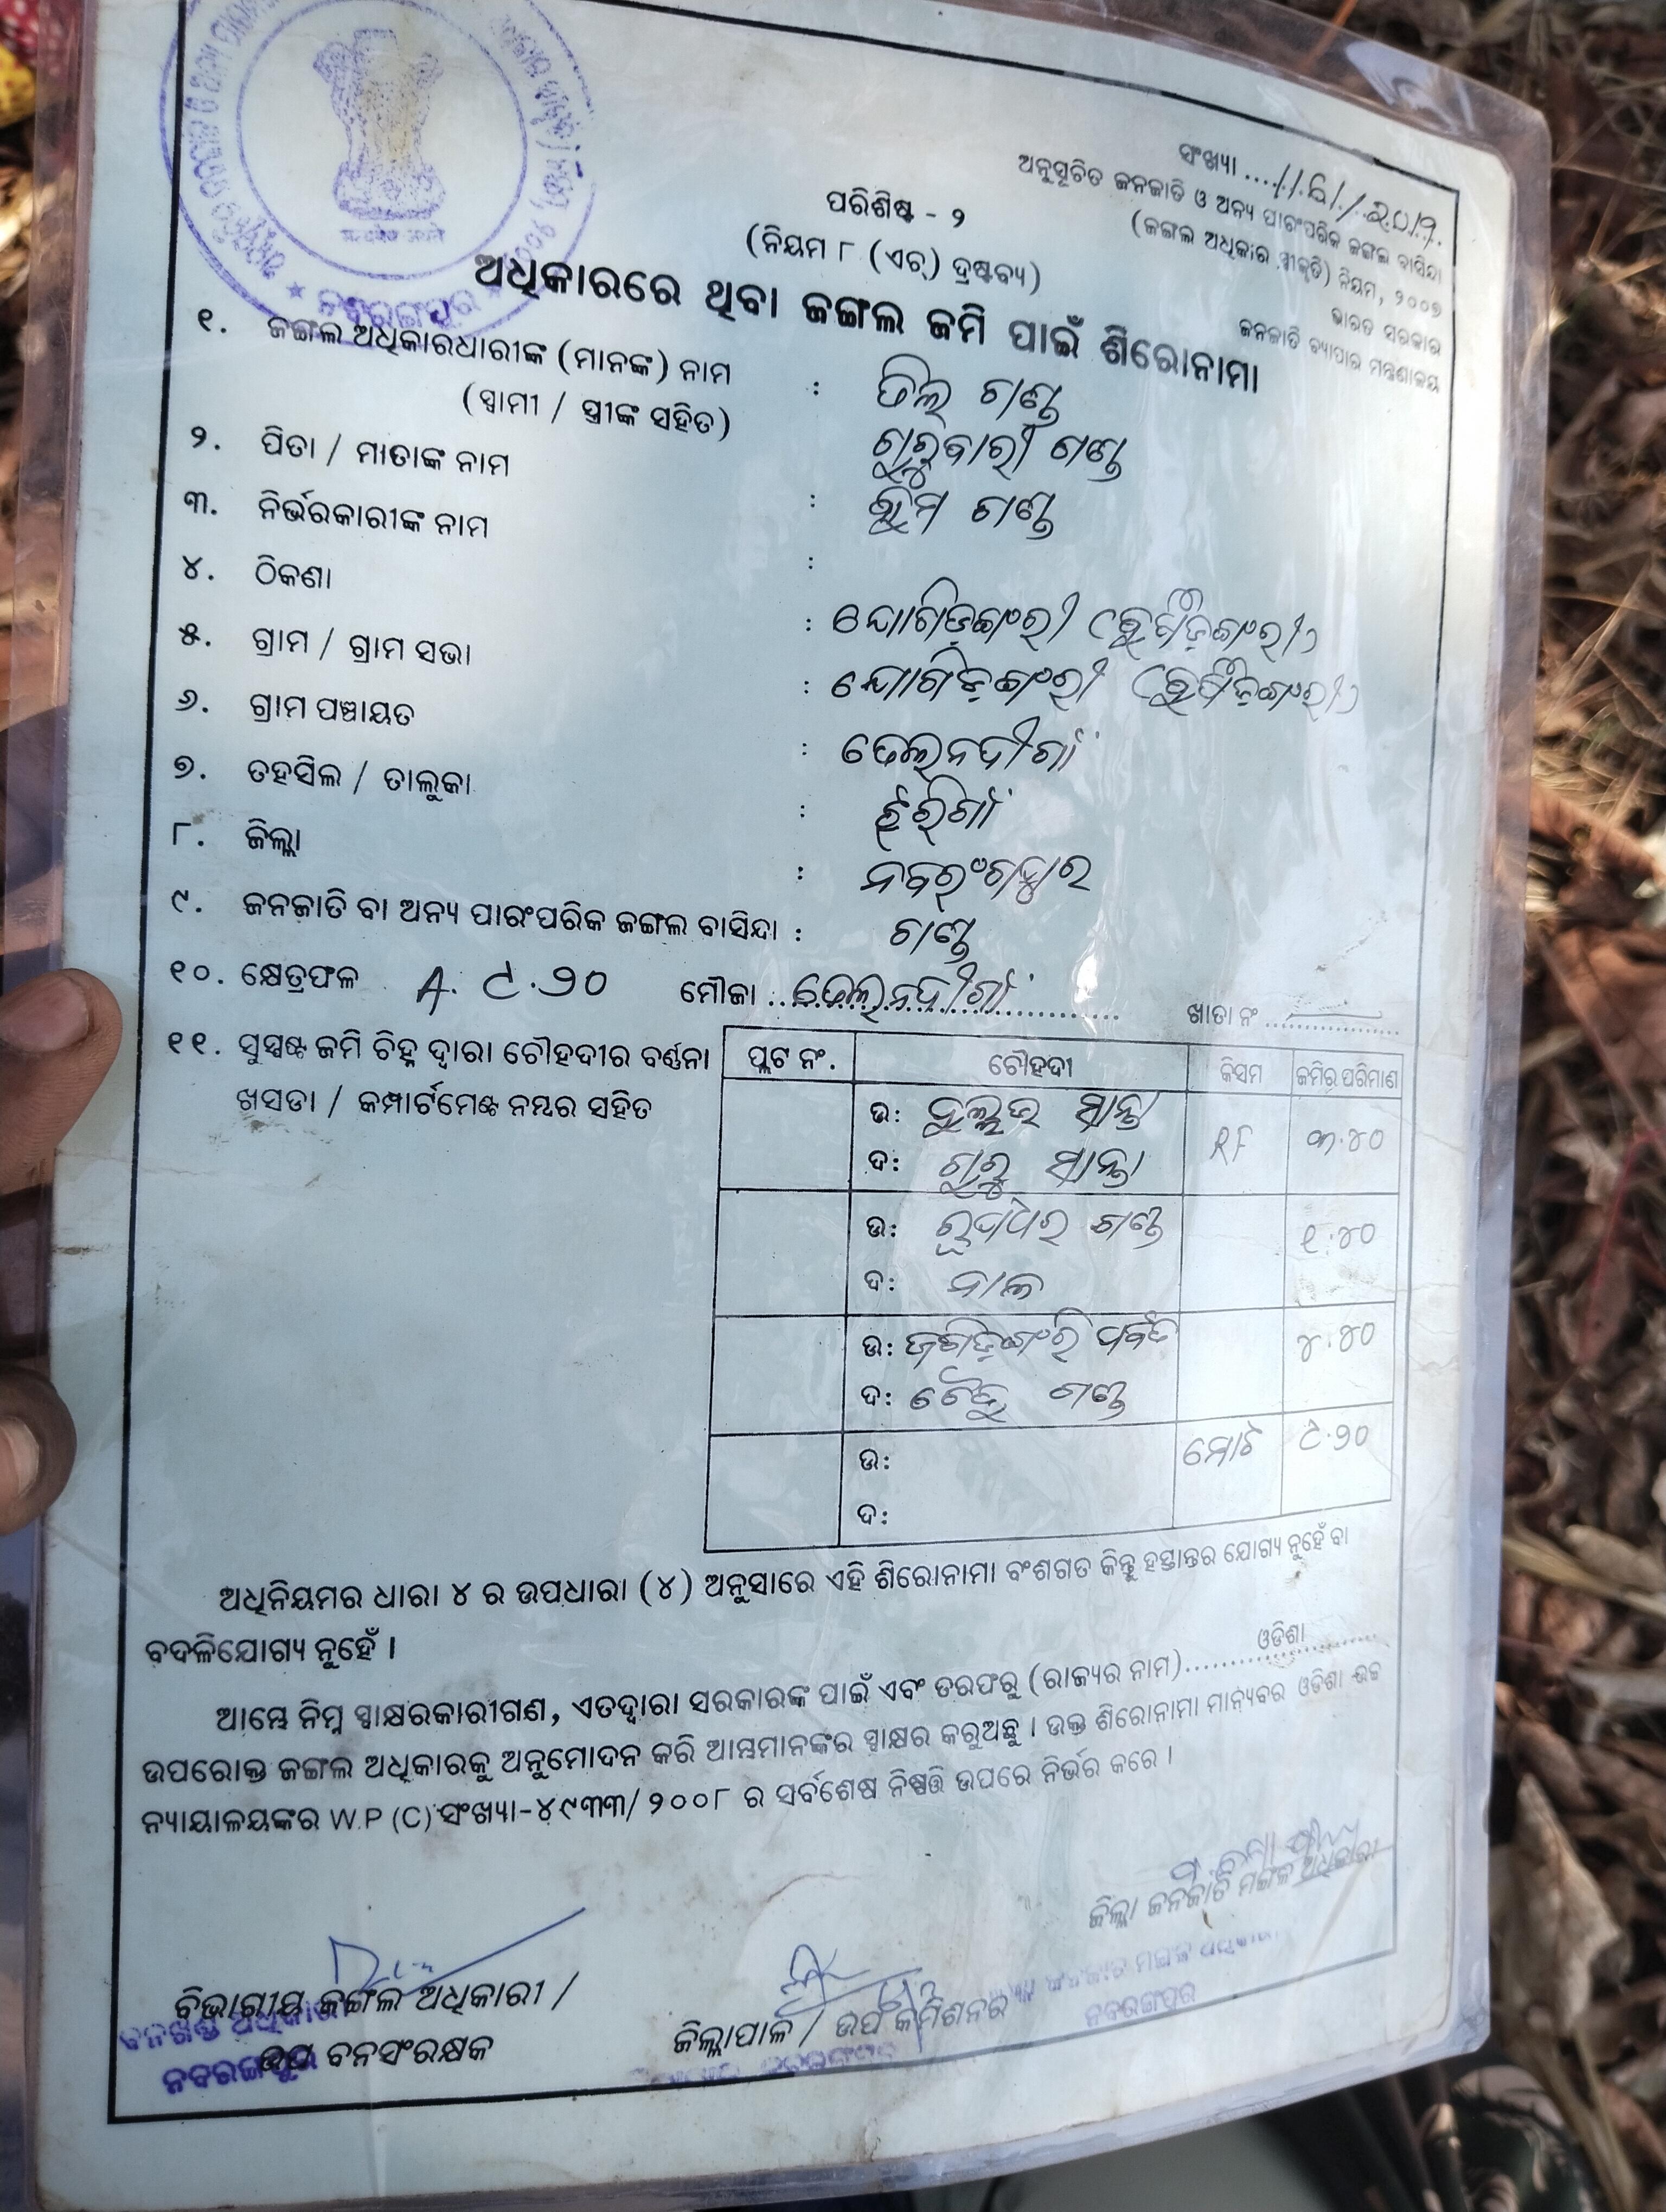 ସଂଖ୍ୟା
ଅନୁସୂଚିତ ଜନଜାତି ଓ ଅନ୍ୟ ପାରଂପରିକ ଜଙ୍ଗଲ ବାସିନ୍ଦା
(ଜଙ୍ଗଲ ଅଧିକାର ସ୍ୱୀକୃତି) ନିୟମ, ୨୦୦୭
ଭାରତ ସରକାର
ଜନଜାତି ବ୍ୟାପାର ମନ୍ତ୍ରଣାଳୟ
ପରିଶିଷ୍ଟ - ୨
(ନିୟମ ୮ (ଏଚ୍) ଦ୍ରଷ୍ଟବ୍ୟ)
ଅଧିକାରରେ ଥିବା ଜଙ୍ଗଲ ଜମି ପାଇଁ ଶିରୋନାମା
୧. ଜଙ୍ଗଲ ଅଧିକାରଧାରୀଙ୍କ (ମାନଙ୍କ) ନାମ : ତିଲ ଗଣ୍ଡ
(ସ୍ୱାମୀ / ସ୍ତ୍ରୀଙ୍କ ସହିତ) ଗୁରୁବାରୀ ଗଣ୍ଡ
୨. ପିତା / ମାତାଙ୍କ ନାମ : ଗଣ୍ଡ
୩. ନିର୍ଭରକାରୀଙ୍କ ନାମ :
୪. ଠିକଣା :
୫. ଗ୍ରାମ / ଗ୍ରାମ ସଭା :
୬. ଗ୍ରାମ ପଞ୍ଚାୟତ : ଢେଲନଦୀଗାଁ
୭. ତହସିଲ / ତାଲୁକା :
୮. ଜିଲ୍ଲା : ନବରଂଗପୁର
୯. ଜନଜାତି ବା ଅନ୍ୟ ପାରଂପରିକ ଜଙ୍ଗଲ ବାସିନ୍ଦା : ଗଣ୍ଡ
୧୦. କ୍ଷେତ୍ରଫଳ A. ୯.୨୦ ମୌଜା ଢେଲନଦୀଗାଁ ଖାତା ନଂ
୧୧. ସୁସ୍ପଷ୍ଟ ଜମି ଚିହ୍ନ ଦ୍ୱାରା ଚୌହଦୀର ବର୍ଣ୍ଣନା
ଖସଡା / କମ୍ପାର୍ଟମେଣ୍ଟ ନମ୍ବର ସହିତ
ପ୍ଲଟ ନଂ. ଚୌହଦୀ କିସମ ଜମିର ପରିମାଣ
ଉ: ସାନ୍ତା RF ୩.୪୦
ଦ: ଗୁରୁ ସାନ୍ତା
ଉ: ରୂପଧର ଗଣ୍ଡ ୧.୪୦
ଦ: ନାଳ
ଉ: ୪.୪୦
ଦ: ଗଣ୍ଡ
ଉ: ମୋଟ ୯.୨୦
ଦ:
ଅଧିନିୟମର ଧାରା ୪ ର ଉପଧାରା (୪) ଅନୁସାରେ ଏହି ଶିରୋନାମା ବଂଶଗତ କିନ୍ତୁ ହସ୍ତାନ୍ତର ଯୋଗ୍ୟ ନୁହେଁ ବା
ବଦଳିଯୋଗ୍ୟ ନୁହେଁ ।
ଆମ୍ଭେ ନିମ୍ନ ସ୍ୱାକ୍ଷରକାରୀଗଣ, ଏତଦ୍ୱାରା ସରକାରଙ୍କ ପାଇଁ ଏବଂ ତରଫରୁ (ରାଜ୍ୟର ନାମ) ଓଡିଶା
ଉପରୋକ୍ତ ଜଙ୍ଗଲ ଅଧିକାରକୁ ଅନୁମୋଦନ କରି ଆମ୍ଭମାନଙ୍କର ସ୍ୱାକ୍ଷର କରୁଅଛୁ । ଉକ୍ତ ଶିରୋନାମା ମାନ୍ୟବର ଓଡିଶା ଉଚ୍ଚ
ନ୍ୟାୟାଳୟଙ୍କର W.P (C) ସଂଖ୍ୟା-୪୯୩୩/୨୦୦୮ ର ସର୍ବଶେଷ ନିଷ୍ପତ୍ତି ଉପରେ ନିର୍ଭର କରେ ।
ଜିଲ୍ଲା ଜନଜାତି ମଙ୍ଗଳ ଅଧିକାରୀ
ନବରଙ୍ଗପୁର
ବିଭାଗୀୟ ଜଙ୍ଗଲ ଅଧିକାରୀ /
ଉପ ବନସଂରକ୍ଷକ
ବନଖଣ୍ଡ ଅଧିକାରୀ
ନବରଙ୍ଗପୁର
ଜିଲ୍ଲାପାଳ / ଉପ କମିଶନର